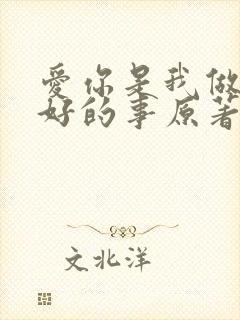 爱你是我做
好的事原著
文北洋